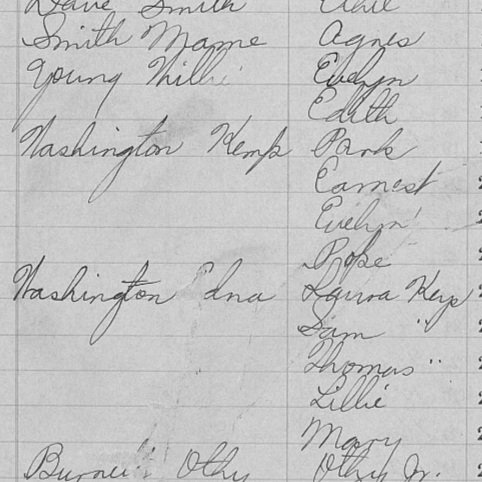 Dave Smith
Smith Mame Agnes
Young Willie Evelyn
Edith
Washington Kemp Park
Earnest
Evelyn
Pope
Washington Edna Laura Keys
Sam "
Thomas "
Lillie
Mary
Othy Othy Jr.